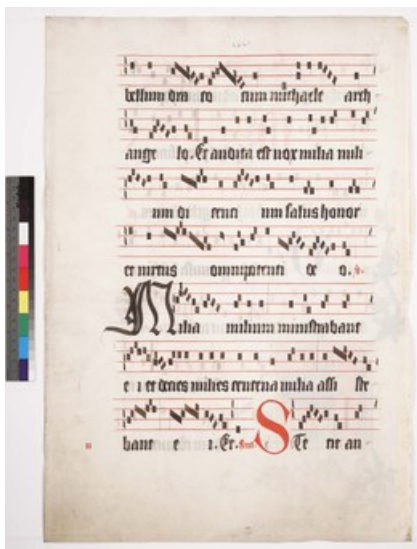 bellum dra co cum michaele arch
ange lo. Et audita est vox milia mili
um di centi um salus honor
et virtus omnipotenti de o. v.
Milia milium ministrabant
e i et decies milies centena milia assi ste
bant e i. Et. STe tit an